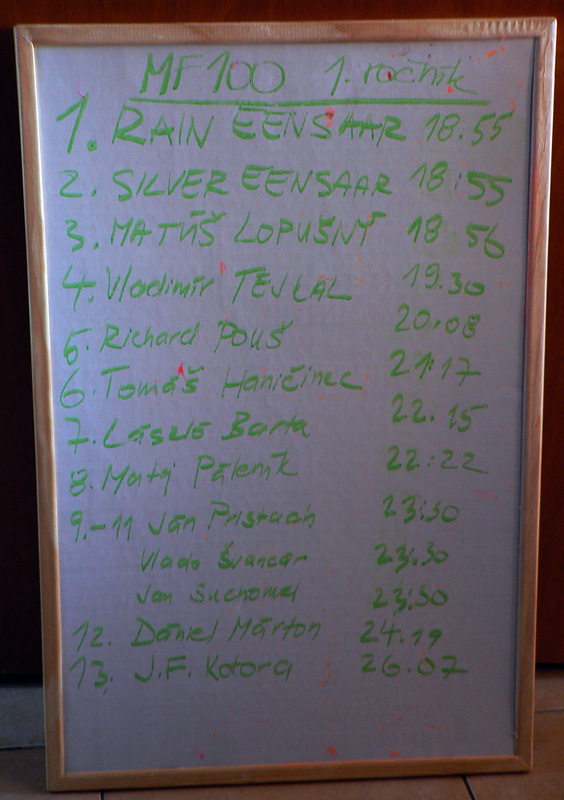 MF100 1. ročník
1. RAIN EENSAAR 18.55
2. SILVER EENSAAR 18:55
3. MATÚŠ LOPUŠNÝ 18 56
4. Vladimír TEJKAL 19.30
5. Richard POUŠ 20.08
6. Tomáš Haničinec 21:17
7. László Barta 22.15
8. Matej Páleník 22:22
9.-11 Ján Pristach 23:30
Vlado Švancár 23:30
Jan Suchomel 23:30
12. Dániel Márton 24.19
13. J.F. Kotora 26.07